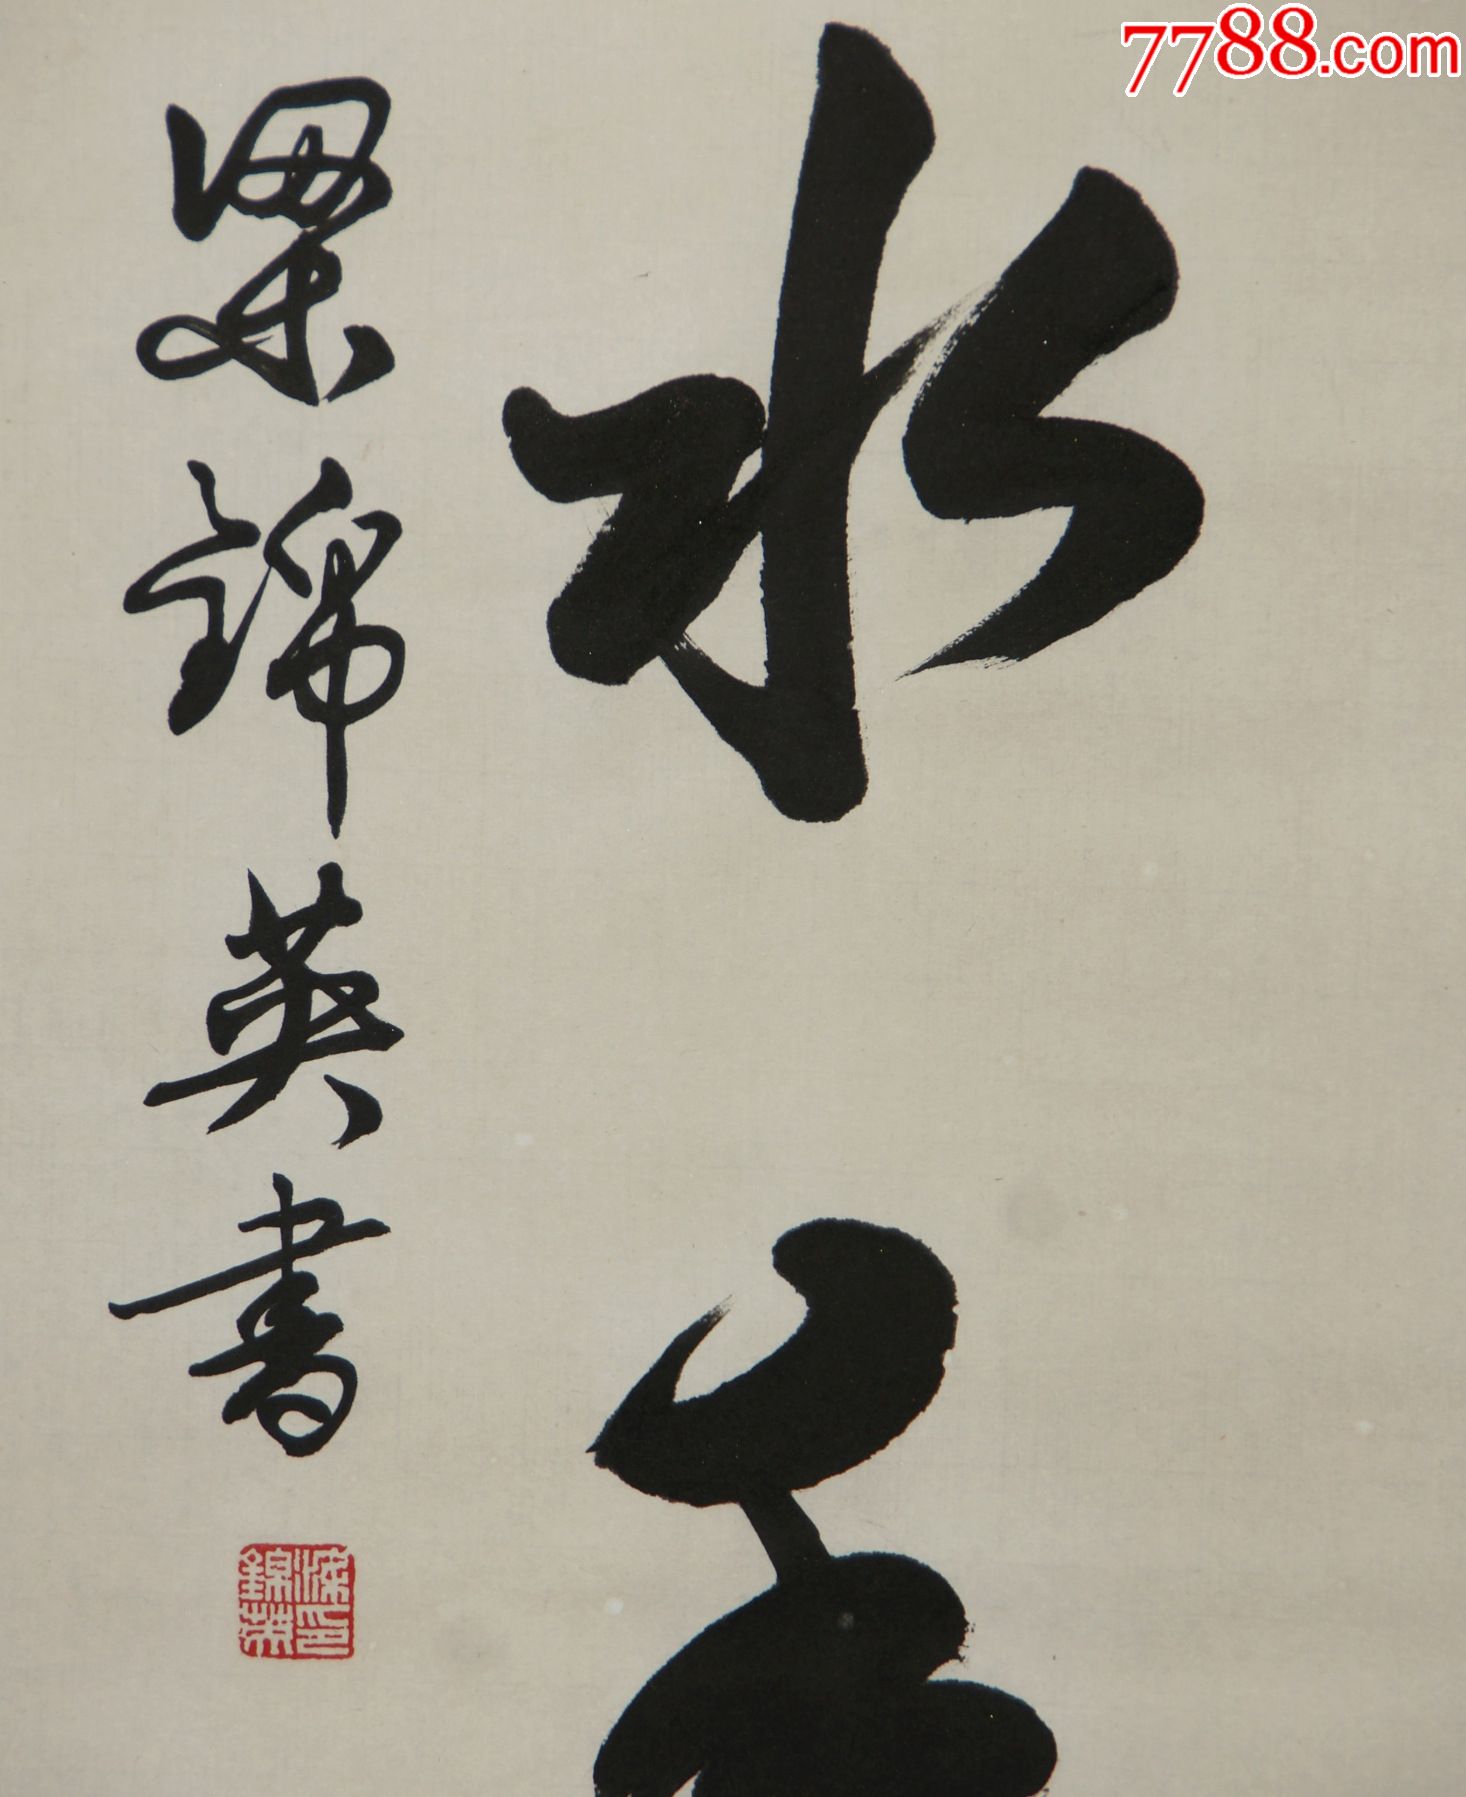 7788.com
水
梁錦英書
梁印
錦英